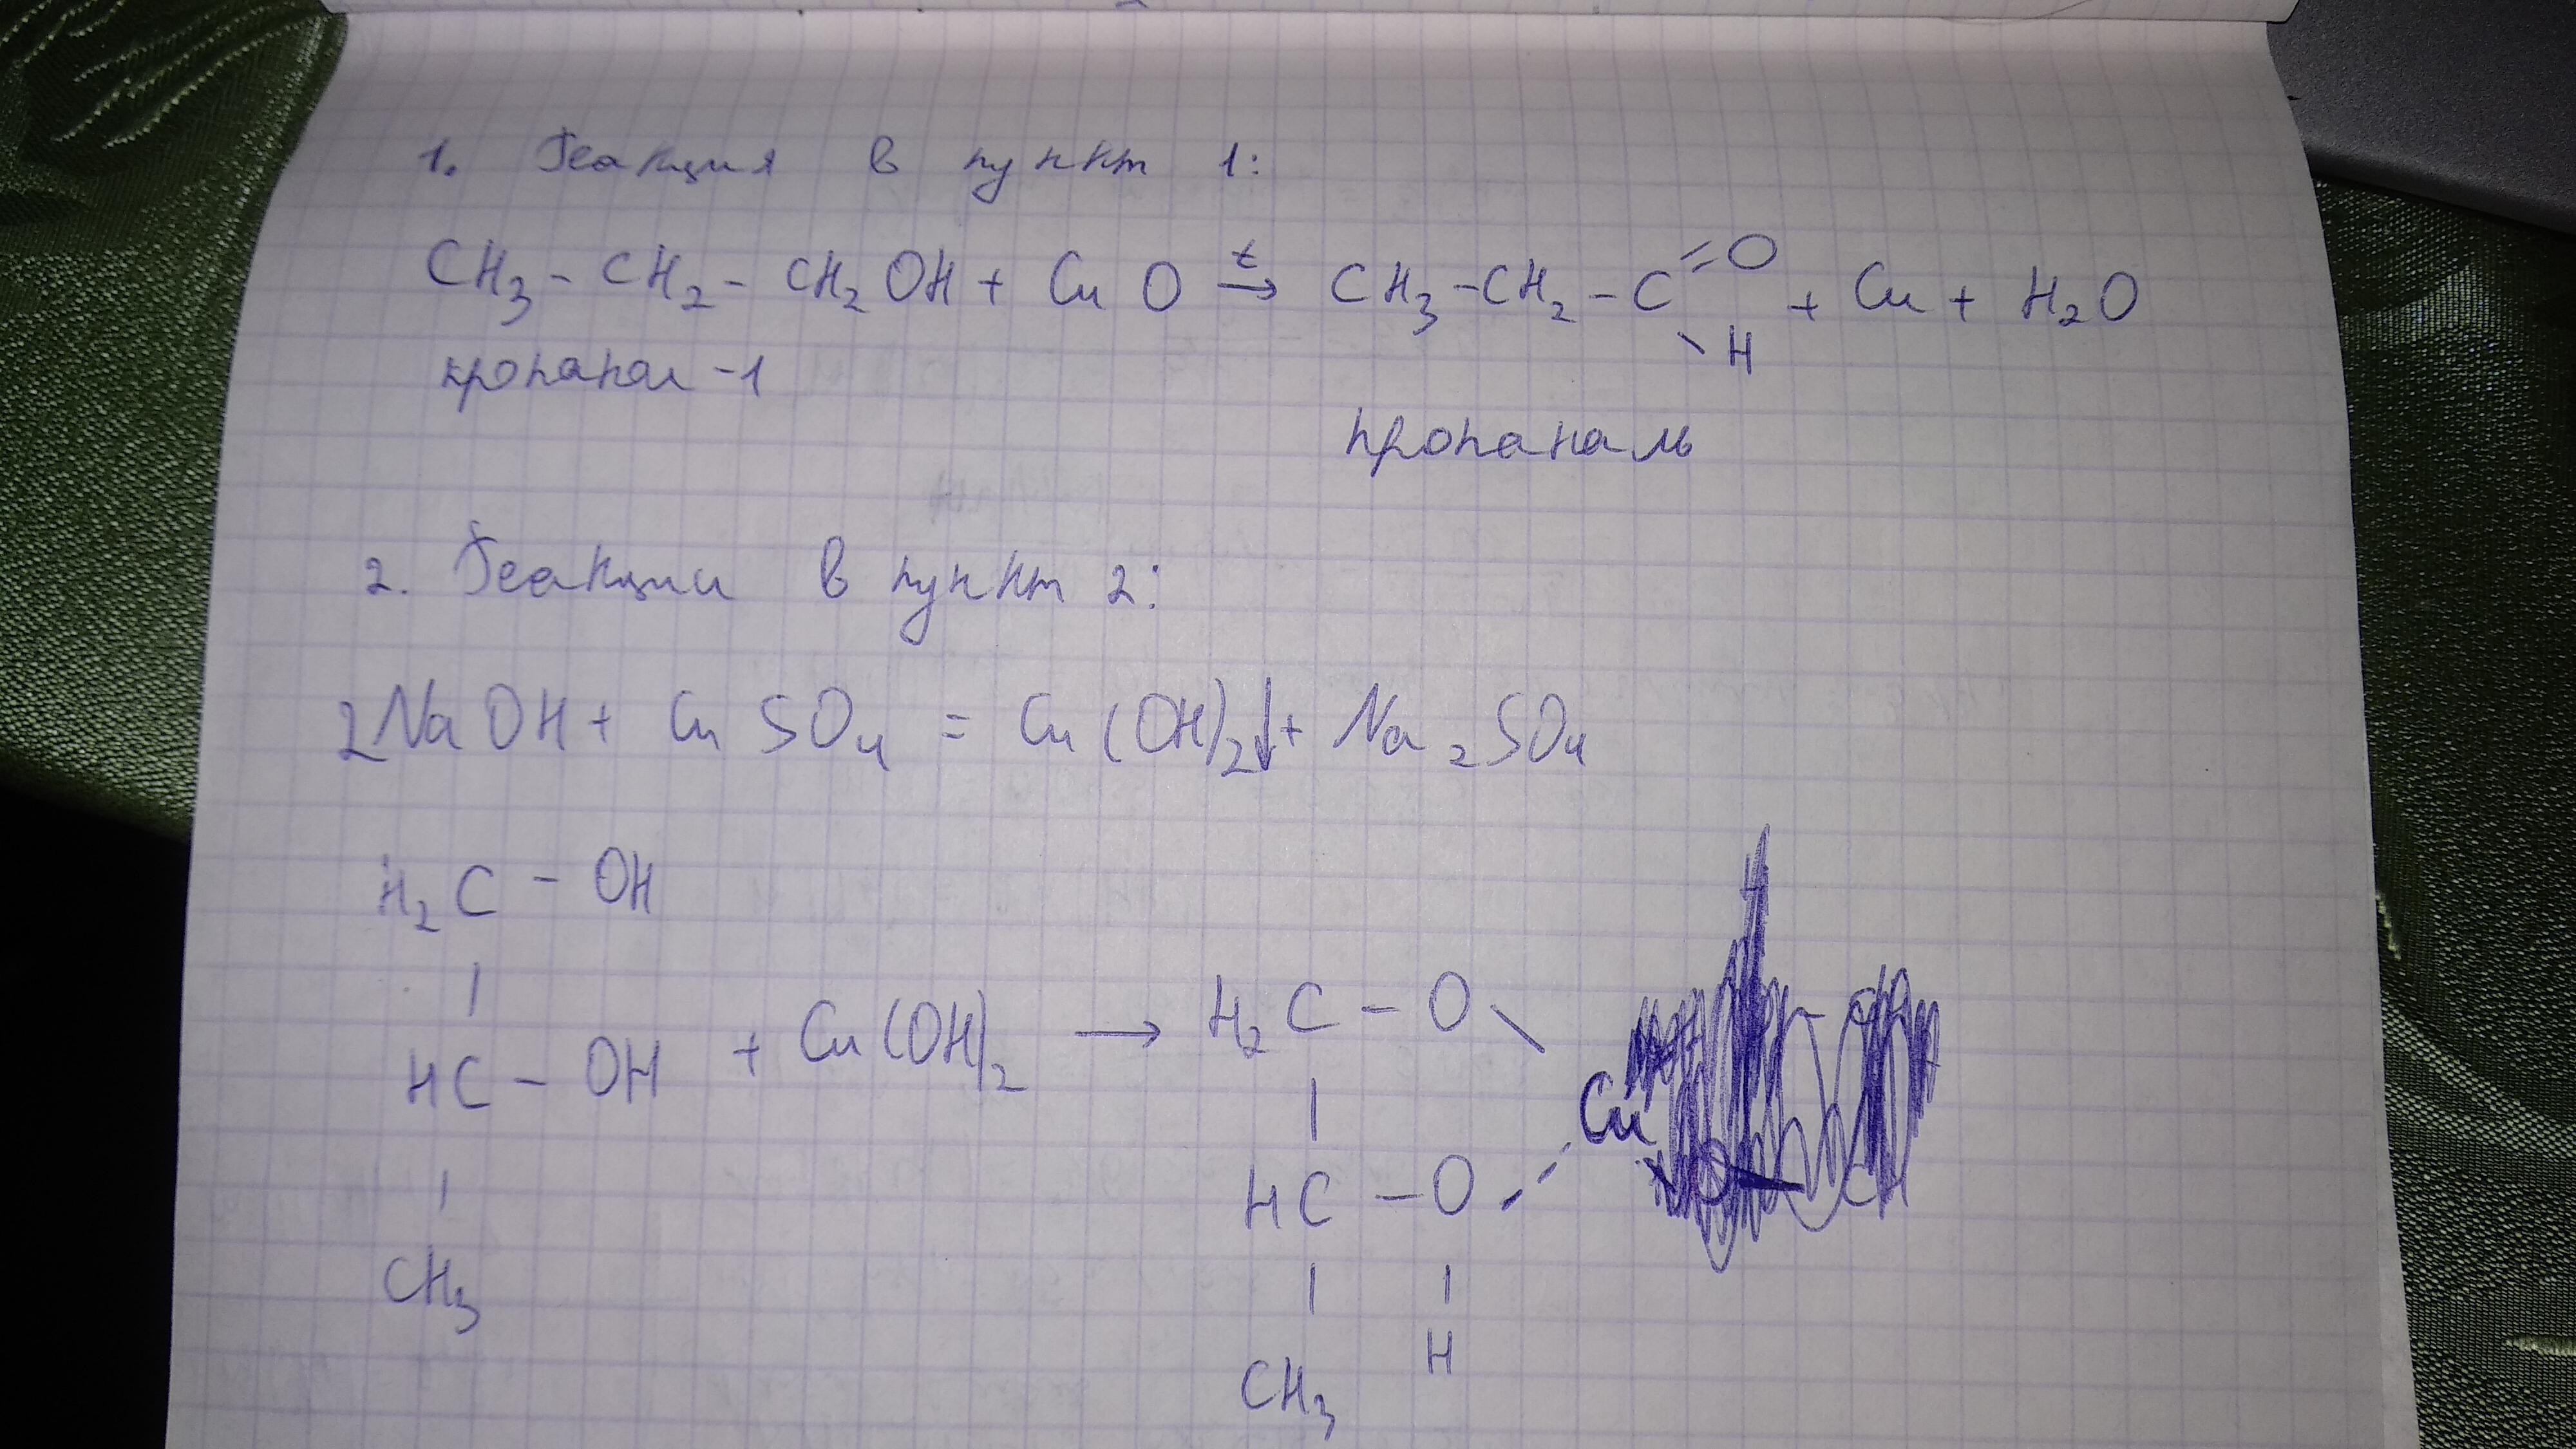 1. Реакция в пункт 1:
t
CH₃ - CH₂ - CH₂OH + CuO → CH₃ - CH₂ - C =O \ H + Cu + H₂O
пропанол -1
пропаналь
2. Реакции в пункт 2:
2NaOH + CuSO₄ = Cu(OH)₂↓ + Na₂SO₄
H₂C - OH
|
HC - OH + Cu(OH)₂ → H₂C - O \
| | Cu
CH₃ HC - O
| |
CH₃ H